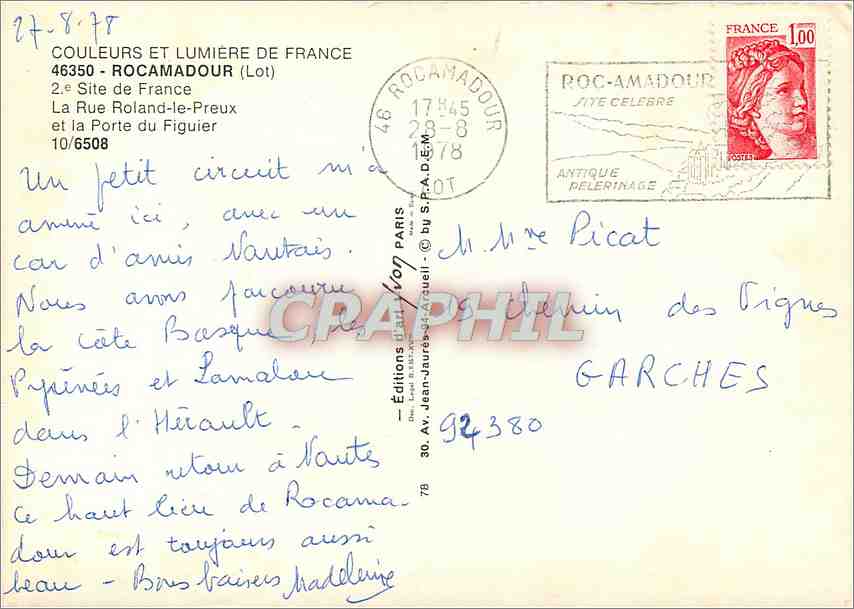 27-8-78
COULEURS ET LUMIÈRE DE FRANCE
46350 - ROCAMADOUR (Lot)
2.e Site de France
La Rue Roland-le-Preux
et la Porte du Figuier
10/6508
Un petit circuit m'a
amené ici, avec un
car d'amis Nantais.
Nous avons parcouru
la Côte Basque, les
Pyrénées et Lamalou
dans l'Hérault.
Demain retour à Nantes
Ce haut lieu de Rocama-
dour est toujours aussi
beau - Bons baisers Madeleine
46 ROCAMADOUR
17H45
28-8
1978
LOT
ROC-AMADOUR
SITE CELEBRE
ANTIQUE
PELERINAGE
FRANCE 1,00
POSTES
— Éditions d'art Yvon PARIS
30. Av. Jean-Jaurès-94-Arcueil - © by S.P.A.D.E.M
78
M. Mme Picat
19 chemin des Vignes
GARCHES
92380
CPRAPHIL